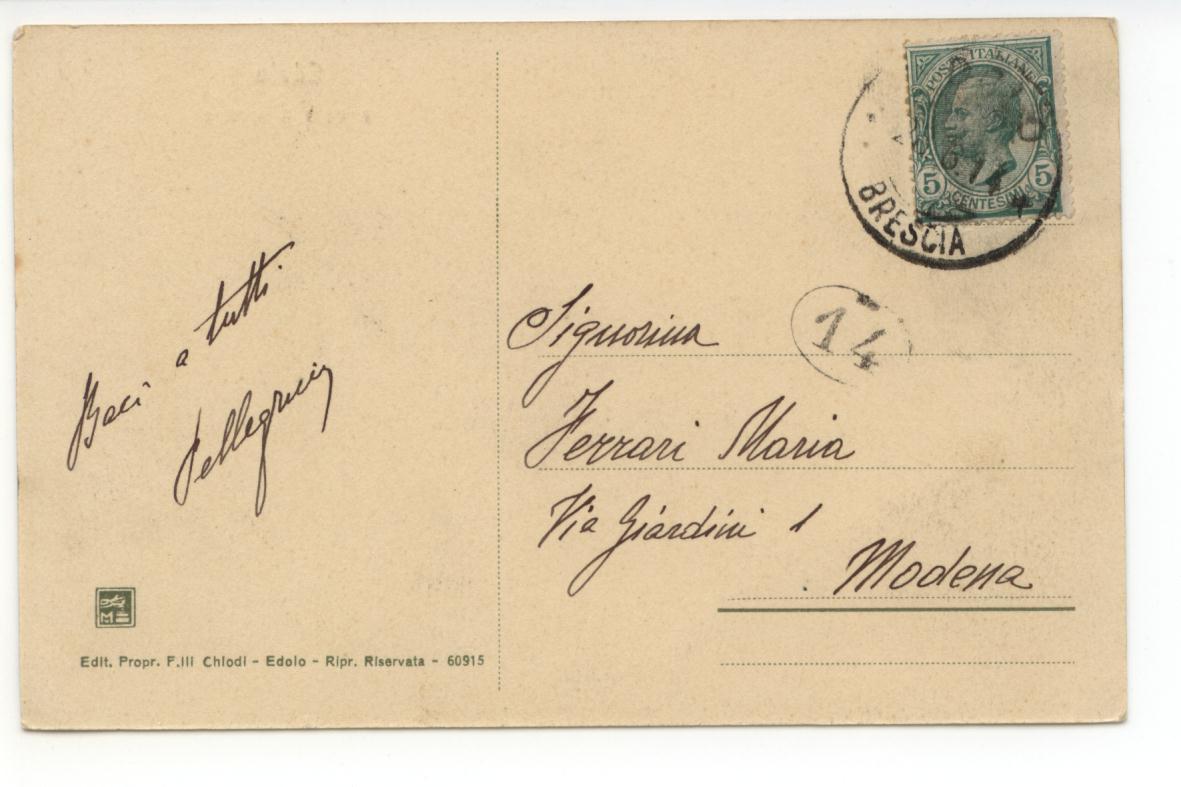 POSTE ITALIANE
5 CENTESIMI 5
6.14
BRESCIA
14
Baci a tutti
Signorina
Ferrari Maria
Via Giardini 1
Modena
Edit. Propr. F.lli Chiodi - Edolo - Ripr. Riservata - 60915